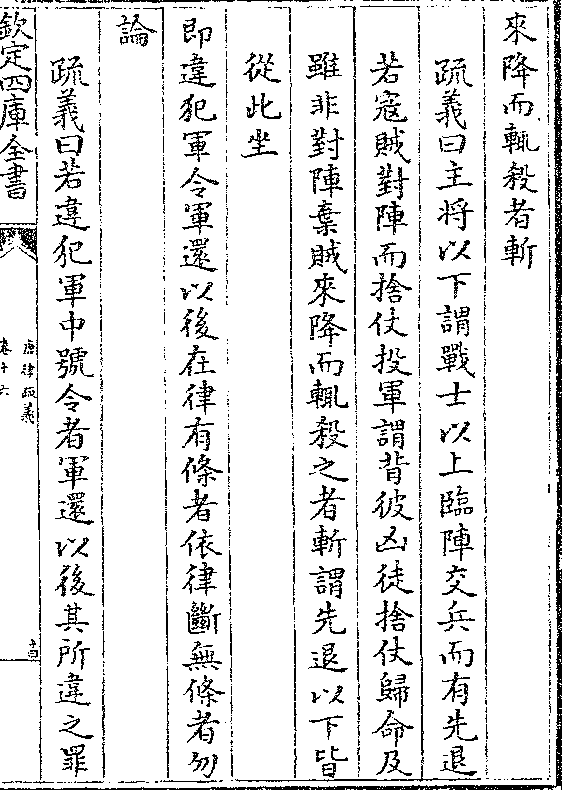 來降而輒殺者斬
疏義曰主將以下謂戰士以上臨陣交兵而有先退
若寇賊對陣而捨仗投軍謂背彼凶徒捨仗歸命及
雖非對陣棄賊來降而輒殺之者斬謂先退以下皆
從此坐
即違犯軍令軍還以後在律有條者依律斷無條者勿
論
疏義曰若違犯軍中號令者軍還以後其所違之罪
欽定四庫全書
唐律疏義
卷十六